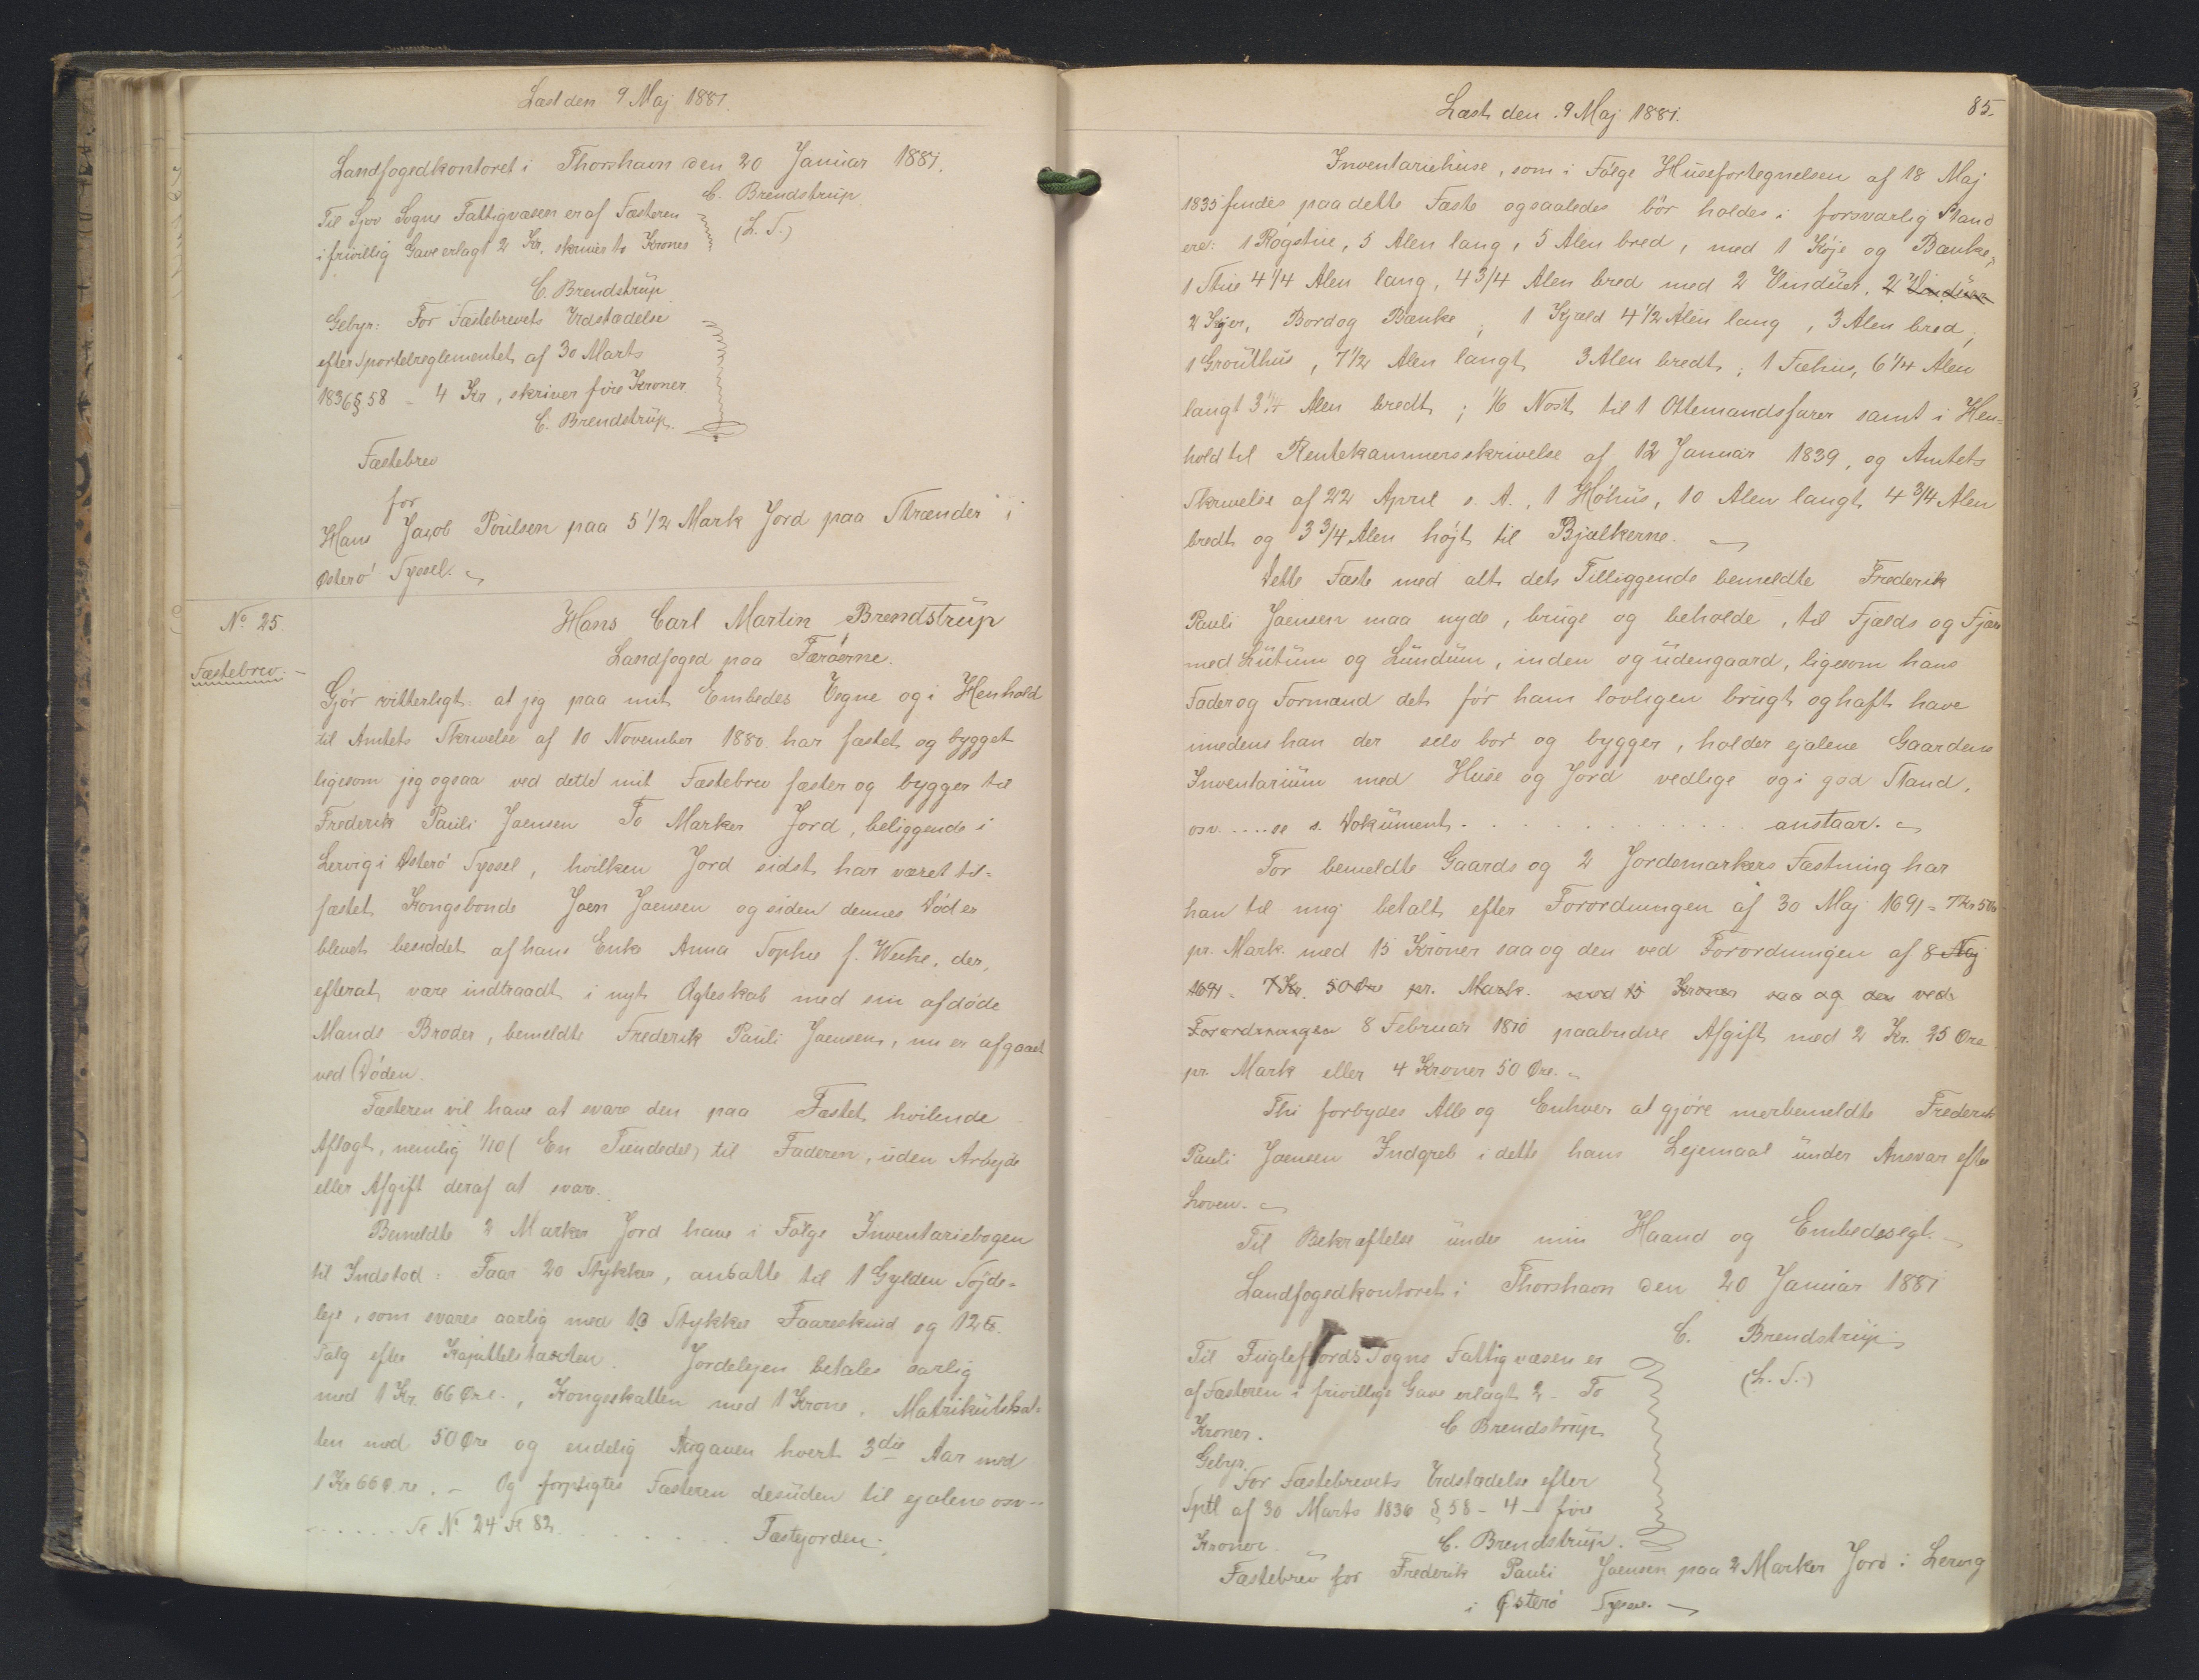 Læst den 9 Maj 1881.
Landfogedkontoret i Thorshavn den 20 Januar 1881.
C. Brendstrup
(L. S.)
Til Sjov Sogns Fattigvæsen er af Fæsteren
i frivillig Gave erlagt 2 Kr. skriver to Kroner
C. Brendstrup
Gebyr: For Fæstebrevets Udstædelse
efter Sportelreglementet af 30 Marts
1836 § 58 - 4 Kr, skriver fire Kroner
C. Brendstrup.
Fæstebrev
for
Hans Jacob Poulsen paa 5 1/2 Mark Jord paa Strænder i
Østerø Syssel.
No 25
Fæstebrev.
Hans Carl Martin Brendstrup
Landfoged paa Færøerne.
Gjør vitterligt: at jeg paa mit Embedes Vegne og i Henhold
til Amtets Skrivelse af 10 November 1880 har fæstet og bygget
ligesom jeg ogsaa ved dette mit Fæstebrev fæster og bygger til
Frederik Pauli Joensen To Marker Jord, beliggende i
Lervig i Østerø Syssel, hvilken Jord sidst har været til-
fæstet Kongsbonde Joen Joensen og siden dennes Død er
blevet besiddet af hans Enke Anna Sophie f. Weihe, der,
efterat være indtraadt i nyt Ægteskab med sin afdøde
Mands Broder, bemeldte Frederik Pauli Joensen, nu er afgaaet
ved Døden.
Fæsteren vil have at svare den paa Fæstet hvilende
Aflagt, nemlig 1/10 (En Tiendedel) til Faderen, uden Arbejde
eller Afgift deraf at svare.
Bemeldte 2 Marker Jord have i Følge Inventariebogen
til Indstød: Faar 20 Stykker, ansatte til 1 Gylden Søjde-
leje, som svares aarlig med 10 Stykker Faareskind og 12 ℔.
Talg efter Kapitelstaxten. Jordelejen betales aarlig
med 1 Kr. 66 Øre., Kongsskatten med 1 Krone, Matrikulskat-
ten med 50 Øre og endelig Aagaven hvert 3die Aar med
1 Kr 66 Øre. - Og forpligtes Fæsteren desuden til ejalene osv--
...... Se No 24 Fl 82 ....... Fæstejorden.
Læst den 9 Maj 1881.
85.
Inventariehuse, som i Følge Husefortegnelsen af 18 Maj
1835 findes paa dette Fæste og saaledes bør holdes i forsvarlig Stand
ere: 1 Røgstue, 5 Alen lang, 5 Alen bred, med 1 Køje og Bænke,
1 Stue 4 1/4 Alen lang, 4 3/4 Alen bred med 2 Vinduer, 2 Vinduer
2 Køjer, Bord og Bænke; 1 Kjæld 4 1/2 Alen lang, 3 Alen bred,
1 Grouthus, 7 1/2 Alen langt 3 Alen bredt; 1 Fæhus, 6 1/4 Alen
langt 3 1/4 Alen bredt; 1/6 Nøst til 1 Ottemandsfarer samt i Hen-
hold til Rentekammersskrivelse af 12 Januar 1839, og Amtets
Skrivelse af 22 April s. A., 1 Høhus, 10 Alen langt 4 3/4 Alen
bredt og 3 3/4 Alen højt til Bjælkerne.
Dette Fæste med alt dets Tilliggende bemeldte Frederik
Pauli Joensen maa nyde, bruge og beholde, til Fjælds og Fjære
med Lutum og Lundum, inden og udengaard, ligesom hans
Fader og Formænd det før ham lovligen brugt og haft have
imedens han der selv bor og bygger, holder ejalene Gaardens
Inventarium med Huse og Jord vedlige og i god Stand,
osv. .... se s. Dokument. .............. anstaar.
For bemeldte Gaards og 2 Jordemarkers Fæstning har
han til mig betalt efter Forordningen af 30 Maj 1691 = 7 Kr 50 Ør
pr. Mark. med 15 Kroner saa og den ved Forordningen af 8 Maj
1691 = 7 Kr. 50 Øre pr. Mark. med 15 Kroner saa og den ved
Forordningen 8 Februar 1810 paabudne Afgift med 2 Kr. 25 Øre
pr. Mark eller 4 Kroner 50 Øre.
Thi forbydes Alle og Enhver at gjøre merbemeldte Frederik
Pauli Joensen Indgreb i dette hans Lejemaal under Ansvar efter
Loven.
Til Bekræftelse under min Haand og Embedssegl.
Landfogedkontoret i Thorshavn den 20 Januar 1881
C. Brendstrup
(L. S.)
Til Fuglefjords Sogns Fattigvæsen er
af Fæsteren i frivillige Gave erlagt 2 - To
Kroner. C Brendstrup
Gebyr.
For Fæstebrevets Udstædelse efter
Sptl af 30 Marts 1836 § 58 - 4 - fire
Kroner. C. Brendstrup.
Fæstebrev for Frederik Pauli Joensen paa 2 Marker Jord i Lervig
i Østerø Syssel.